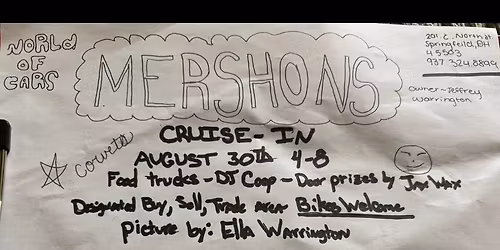 WORLD
OF
CARS
MERSHONS
201 E. North st.
Springfeild, OH
45503
937 324 8899
Owner-Jeffrey
Warrington
CRUISE-IN
AUGUST 30th 4-8
corvets
Food trucks - DJ Coop - Door prizes by Jax Wax
Designated Buy, Sell, Trade area Bikes Welcome
picture by: Ella Warrington